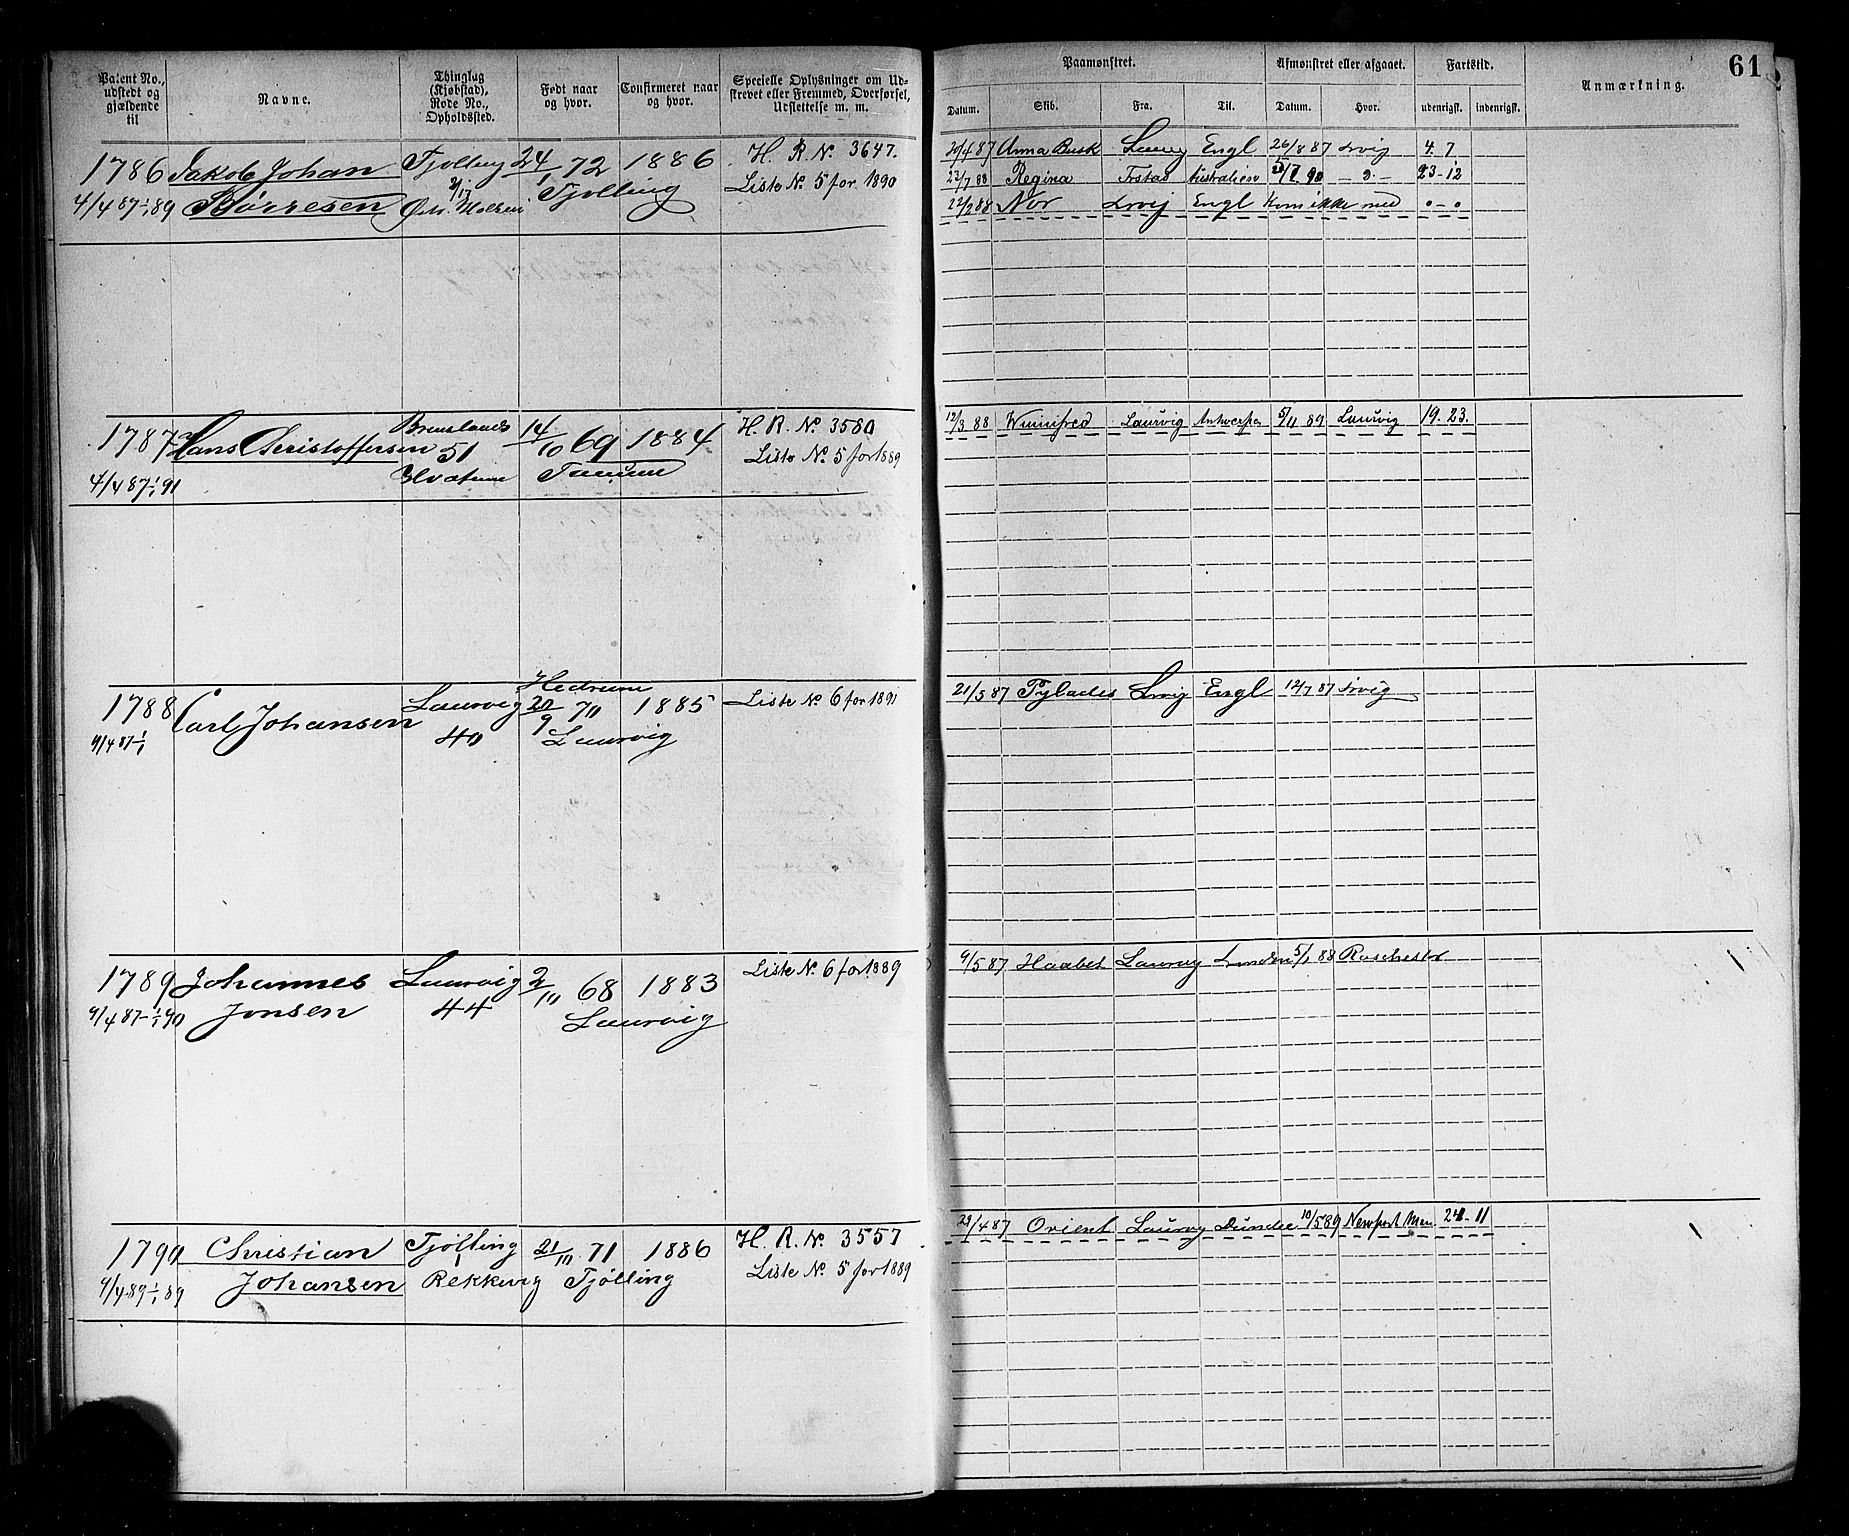 Patent No., udstedt og gjældende til
Navne.
Thinglag (Kjøbstad), Rode No., Opholdssted.
Født naar og hvor.
Confirmeret naar og hvor.
Specielle Oplysninger om Udskrevet eller Fremmed, Overførsel, Udslettelse m. m.
Paamønstret.
Afmønstret eller afgaaet.
Fartstid.
Anmærkning.
61
Datum.
Skib.
Fra.
Til.
Datum.
Hvor.
udenrigsk.
indenrigsk.
1786 Jakob Johan Tjølling 24/1 72 1886 H. R. No. 3647.
4/4 87-1/1 89 Børresen 2/17 Tjølling Liste No. 5 for 1890
20/4 87 Anna Busk Laurvig Engl 26/8 87 Lrvig 4. 7
22/7 88 Regina Frstad Australien 90 23-12
22/2 88 Nor Lrvig Engl Kom ikke med
1787 Hans Christoffersen Brunlanes 51 14/10 69 1884 H. R. No. 3580
4/4 87-1/1 91 Tanum Liste No. 5 for 1889
12/3 88 Winnifred Laurvig Antwerpen 5/11 89 Laurvig 19. 23.
1788 Carl Johansen Laurvig Hedrum 70 1885 Liste No. 6 for 1891
40 Laurvig
21/5 87 Pylades Lrvig Engl 12/7 87 Lrvig
1789 Johannes Laurvig 2/10 68 1883 Liste No. 6 for 1889
9/4 87-1/1 90 Jonsen 44 Laurvig
9/5 87 Haabet Laurvig London 5/1 88 Rochester
1790 Christian Tjølling 21/10 71 1886 H. R. No. 3557
Johansen 1 Rekkevig Tjølling Liste No. 5 for 1889
29/4 87 Orient Laurvig Dundee 10/5 89 Newport Mon 24-11